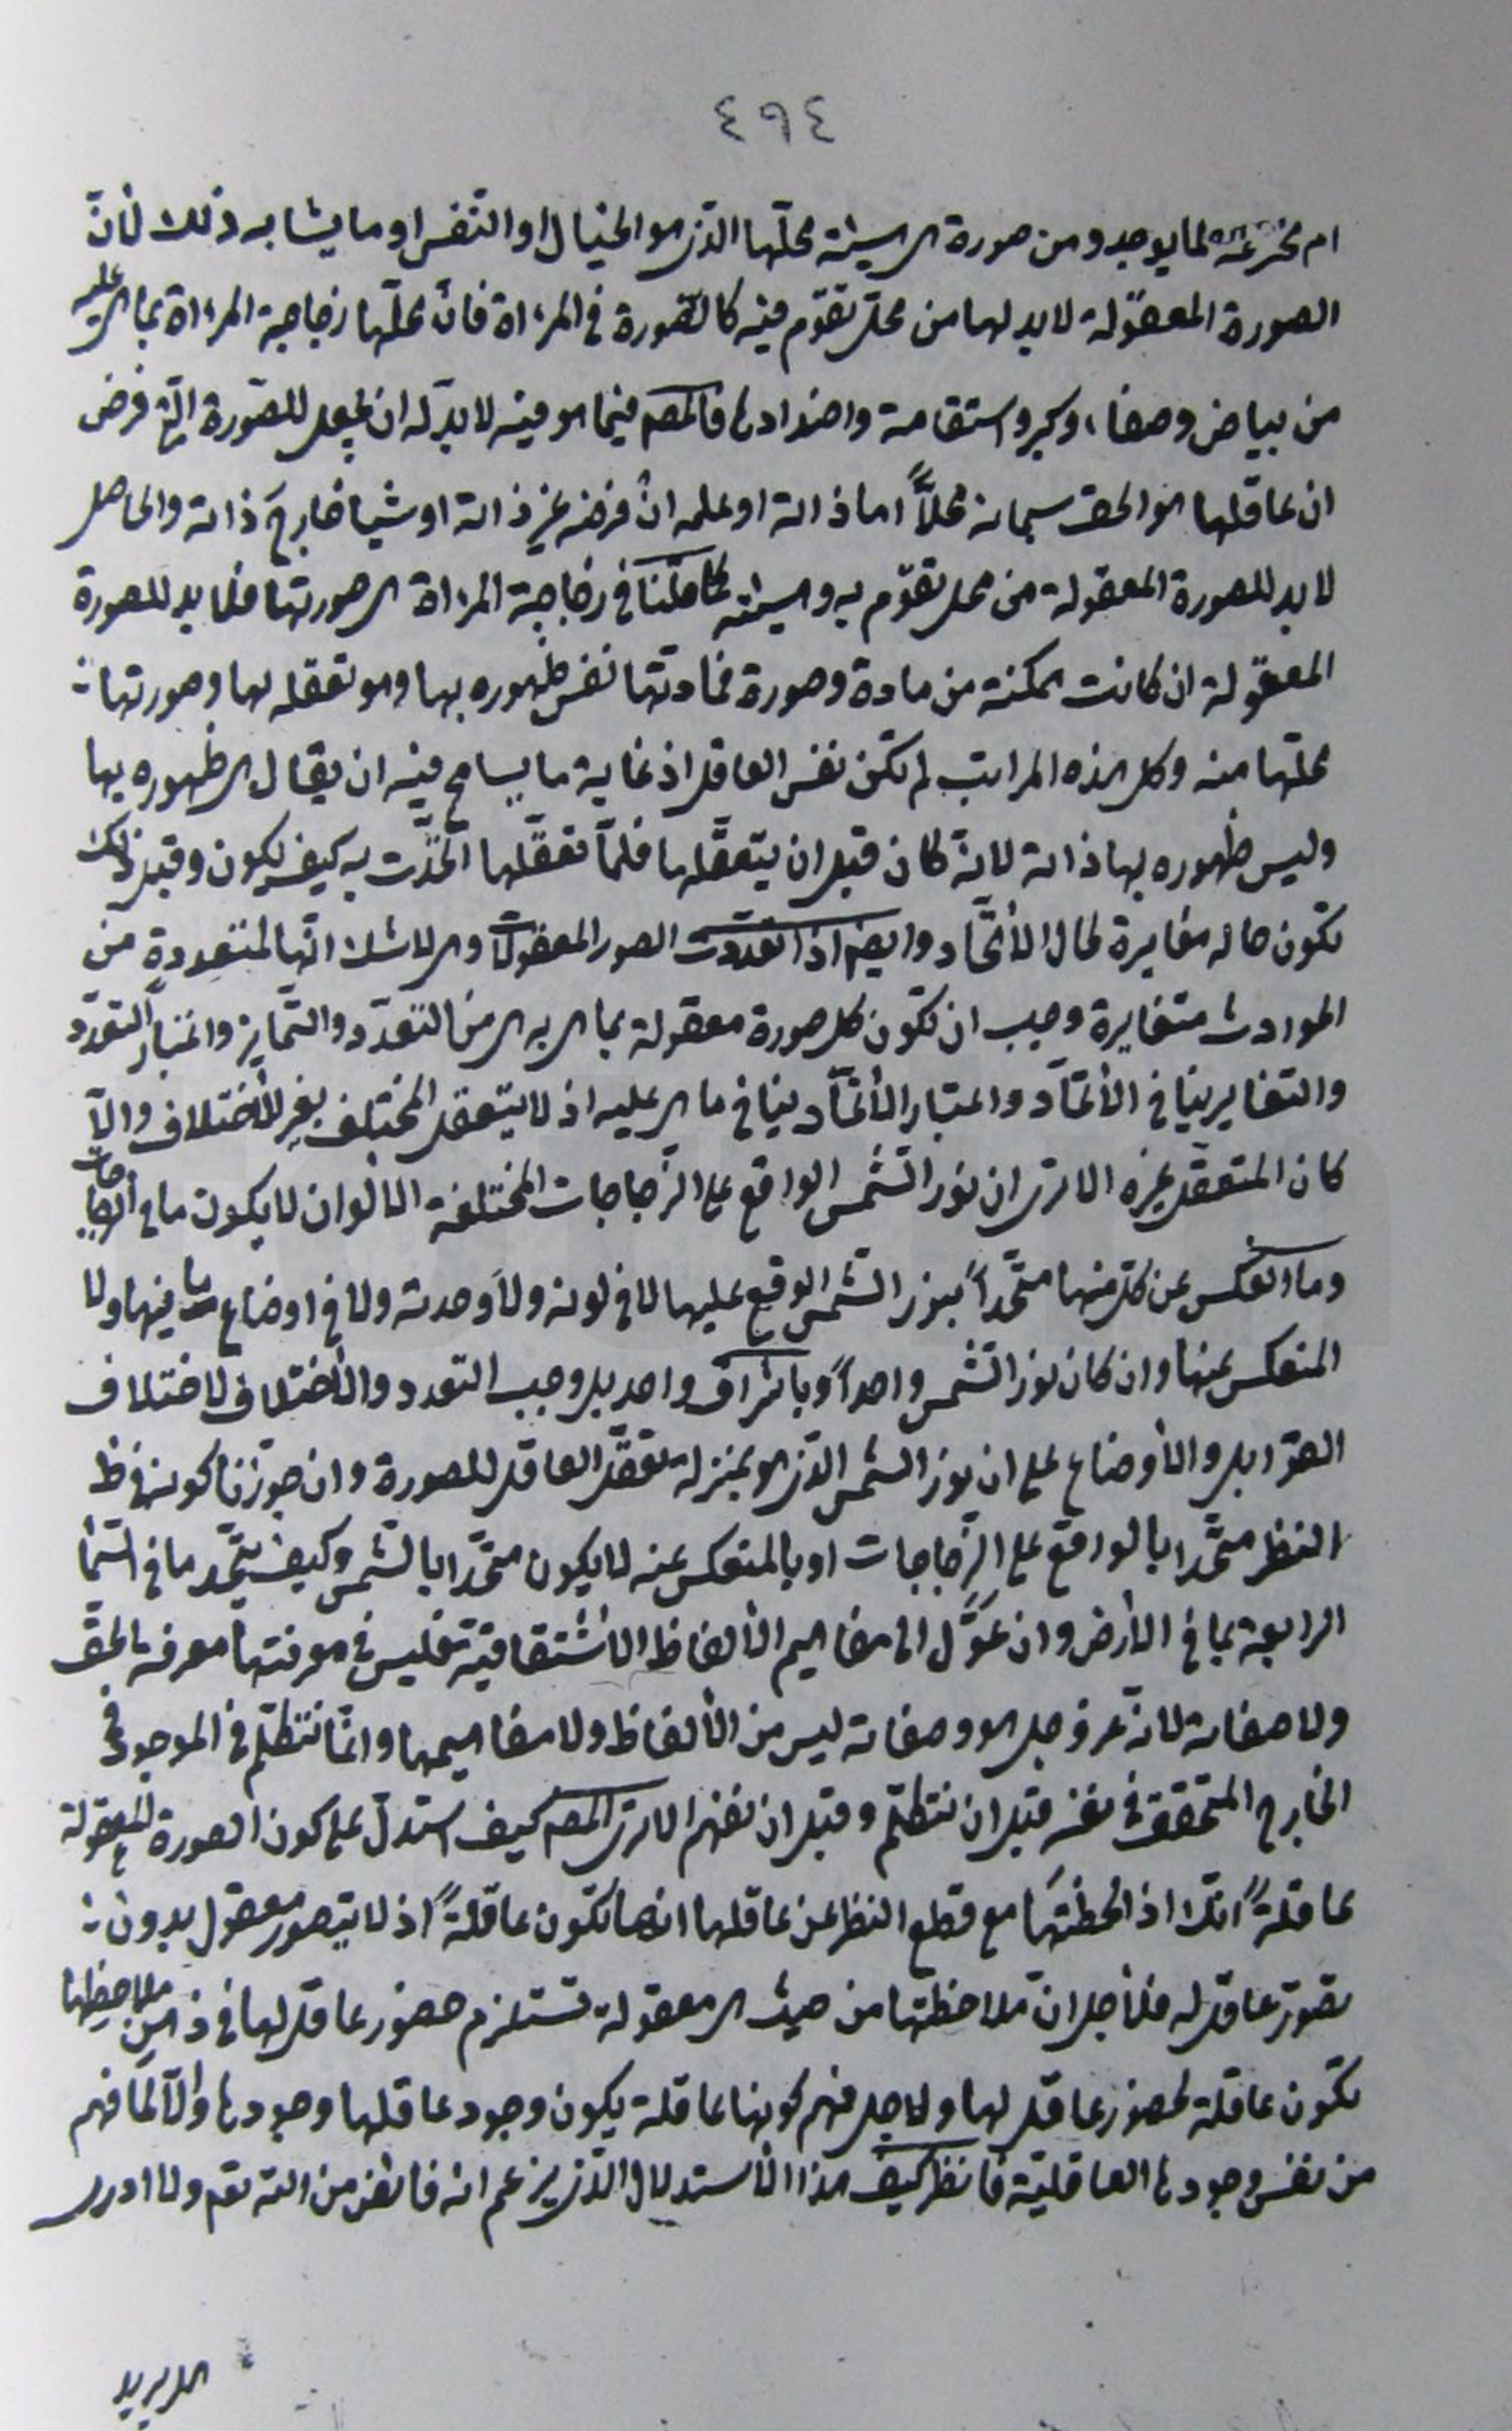 ٤٩٤
ام مخترعة لما يوجد ومن صورة هى هيئة محلّها الذى هو الخيال او النّفس او ما يشابه ذلك لأنّ
الصورة المعقولة لا بد لها من محل تقوّم فيه كالصّورة فى المرءاة فانّ محلّها زجاجة المرءاة بما هى عليه
من بياض وصفاء وكبر واستقامة واضدادها فالمصـ فيما هو فيه لا بدّ له ان يجعل للصّورة الّتى فرض
ان عاقلها هو الحق سبحانه محلاً اما ذاته او علمه ان فرضه غير ذاته او شيئا خارج ذاته والحاصل
لا بد للصورة المعقولة من محل تقوّم به وهيئته كما مثلنا فى زجاجة المرءاة هى صورتها فلا بد للصورة
المعقولة ان كانت ممكنة من مادة وصورة فمادتها نفس ظهوره بها وهو تعقله لها وصورتها
محلّها منه وكل هذه المراتب لم تكن نفس العاقل اذ غاية ما يسامح فيه ان يقال هى ظهوره بها
وليس ظهوره بها ذاته لانّه كان قبل ان يتعقّلها فلمّا تعقّلها اتّحدت به كيف يكون وقبل ذلك
تكون حاله مغايرة لحال الأتّحاد وايضا اذا تعددت الصور المعقولات وهى لا شك انّها لمتعددة من
الموادث متغايرة وجب ان تكون كل صورة معقولة بما هى به هى من التعدّد والتّمايز واعتبار التعدّد
والتغاير ينافى الأتّحاد واعتبار الأتّحاد ينافى ما هى عليه اذ لا يتعقل المختلف بغير الأختلاف والّا
كان المتعقّل غيره الا ترى ان نور الشّمس الواقع على الزّجاجات المختلفة الالوان لا يكون ما فى الزجاجات
وما انعكس عن كلّ منها متّحداً بنور الشّمس الوقع عليها لا فى لونه ولا وحدته ولا فى اوضاع ما فيها ولا
المنعكس عنها وان كان نور الشّمس واحداً وباشراق واحد بل وجب التعدد والأختلاف لاختلاف
القوابل والأوضاع على ان نور الشمس الّذى هو بمنزلة تعقّل العاقل للصورة وان جوّزنا كونه فى ظ
النظر متّحدا بالواقع على الزّجاجات او بالمنعكس عنه لا يكون متّحدا بالشّمس وكيف يتّحد ما فى السّماء
الرابعة بما فى الأرض وان عوّل الى مفاهيم الألفاظ الأشتقاقيّة فليس فى معرفتها معرفة الحق
ولا صفاته لانّه عز وجل هو وصفاته ليس من الألفاظ ولا مفاهيمها وانّما نتكلّم فى الموجود فى
الخارج المتحقق فى نفسه قبل ان نتكلّم وقبل ان نفهم الا ترى المصـ كيف استدلّ على كون الصورة المعقولة
عاقلةً انّك اذا لحظتها مع قطع النظر عن عاقلها انها تكون عاقلةً اذ لا يتصور معقول بدون
تصوّر عاقل له فلأجل انّ ملاحظتها من حيث هى معقولة تستلزم حضور عاقل لها فى ذهن ملاحظها
تكون عاقلة لحضور عاقل لها ولاجل فهم كونها عاقلة يكون وجود عاقلها وجودها والّا لما فهم
من نفس وجودها العاقليّة فانظر كيف هذا الأستدلال الّذى يزعم انه فائض من الله تعـ ولا ادرى
هل يريد